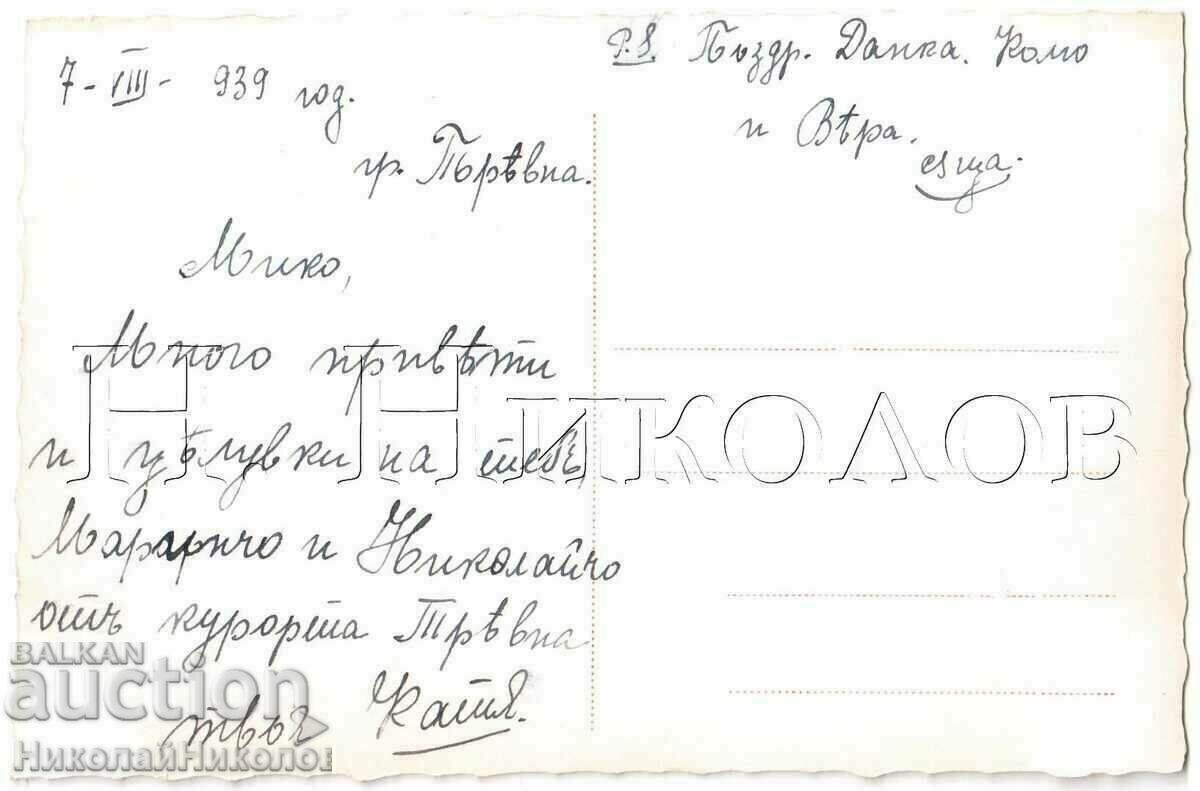 7-VIII- 939 год.
гр. Трѣвна.
Мико,
Много привѣти
и цѣлувки на тебе,
Маринчо и Николайчо
отъ курорта Трѣвна
твоя Катя.
P.S. Поздр. Данка. Комо
и Вѣра.
също.
Н НИКОЛОВ
BALKAN
auction
НиколайНиколов